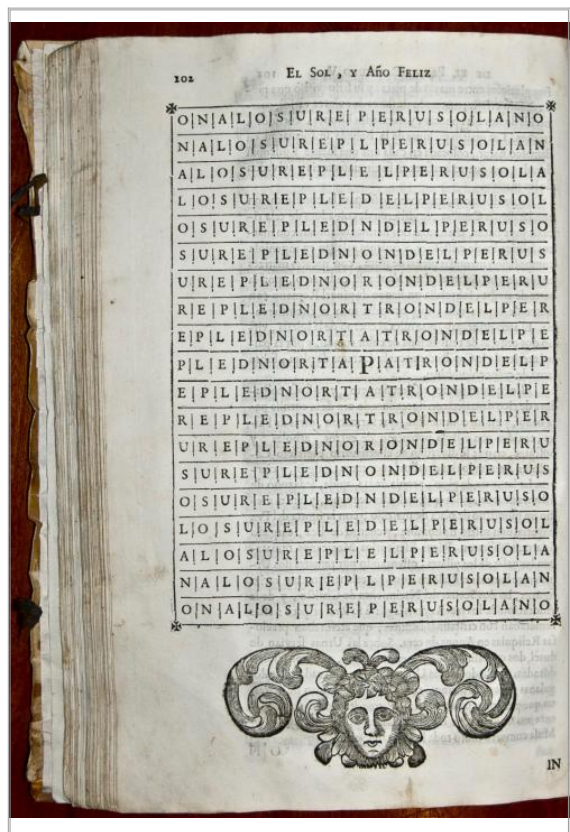 102 EL SOL, Y Año FELIZ
O N A L O S U R E P E R U S O L A N O
N A L O S U R E P L P E R U S O L A N
A L O S U R E P L E L P E R U S O L A
L O S U R E P L E D E L P E R U S O L
O S U R E P L E D N D E L P E R U S O
S U R E P L E D N O N D E L P E R U S
U R E P L E D N O R O N D E L P E R U
R E P L E D N O R T R O N D E L P E R
E P L E D N O R T A T R O N D E L P E
P L E D N O R T A P A T R O N D E L P
E P L E D N O R T A T R O N D E L P E
R E P L E D N O R T R O N D E L P E R
U R E P L E D N O R O N D E L P E R U
S U R E P L E D N O N D E L P E R U S
O S U R E P L E D N D E L P E R U S O
L O S U R E P L E D E L P E R U S O L
A L O S U R E P L E L P E R U S O L A
N A L O S U R E P L P E R U S O L A N
O N A L O S U R E P E R U S O L A N O
IN